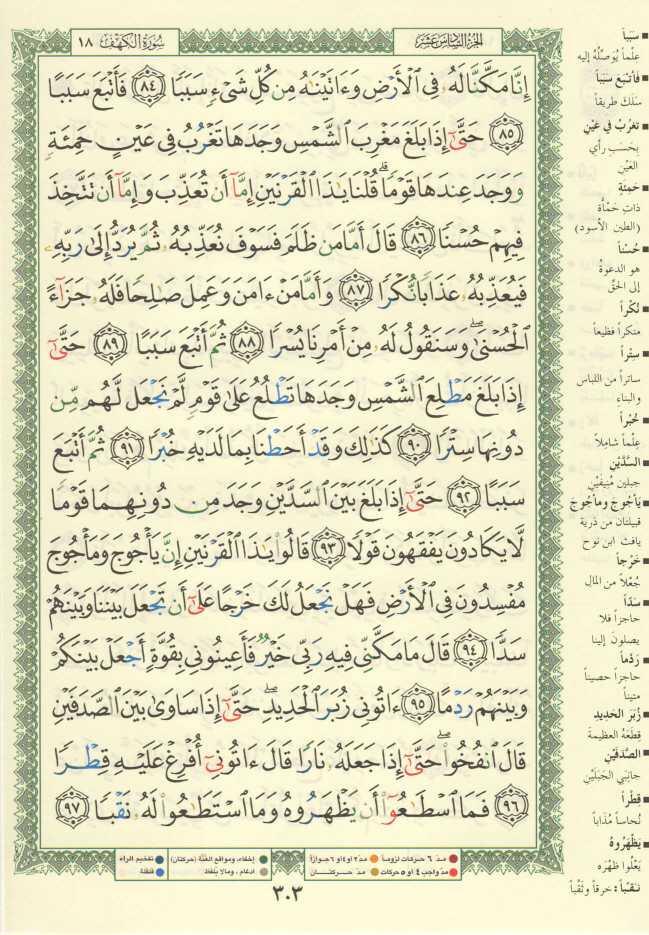 الجزء السادس عشر
سورة الكهف ١٨
إِنَّا مَكَّنَّا لَهُۥ فِى ٱلْأَرْضِ وَءَاتَيْنَٰهُ مِن كُلِّ شَىْءٍ سَبَبًا ٨٤ فَأَتْبَعَ سَبَبًا
٨٥ حَتَّىٰٓ إِذَا بَلَغَ مَغْرِبَ ٱلشَّمْسِ وَجَدَهَا تَغْرُبُ فِى عَيْنٍ حَمِئَةٍ
وَوَجَدَ عِندَهَا قَوْمًا ۗ قُلْنَا يَٰذَا ٱلْقَرْنَيْنِ إِمَّآ أَن تُعَذِّبَ وَإِمَّآ أَن تَتَّخِذَ
فِيهِمْ حُسْنًا ٨٦ قَالَ أَمَّا مَن ظَلَمَ فَسَوْفَ نُعَذِّبُهُۥ ثُمَّ يُرَدُّ إِلَىٰ رَبِّهِۦ
فَيُعَذِّبُهُۥ عَذَابًا نُّكْرًا ٨٧ وَأَمَّا مَنْ ءَامَنَ وَعَمِلَ صَٰلِحًا فَلَهُۥ جَزَآءً
ٱلْحُسْنَىٰ ۖ وَسَنَقُولُ لَهُۥ مِنْ أَمْرِنَا يُسْرًا ٨٨ ثُمَّ أَتْبَعَ سَبَبًا ٨٩ حَتَّىٰٓ
إِذَا بَلَغَ مَطْلِعَ ٱلشَّمْسِ وَجَدَهَا تَطْلُعُ عَلَىٰ قَوْمٍ لَّمْ نَجْعَل لَّهُم مِّن
دُونِهَا سِتْرًا ٩٠ كَذَٰلِكَ وَقَدْ أَحَطْنَا بِمَا لَدَيْهِ خُبْرًا ٩١ ثُمَّ أَتْبَعَ
سَبَبًا ٩٢ حَتَّىٰٓ إِذَا بَلَغَ بَيْنَ ٱلسَّدَّيْنِ وَجَدَ مِن دُونِهِمَا قَوْمًا
لَّا يَكَادُونَ يَفْقَهُونَ قَوْلًا ٩٣ قَالُوا۟ يَٰذَا ٱلْقَرْنَيْنِ إِنَّ يَأْجُوجَ وَمَأْجُوجَ
مُفْسِدُونَ فِى ٱلْأَرْضِ فَهَلْ نَجْعَلُ لَكَ خَرْجًا عَلَىٰٓ أَن تَجْعَلَ بَيْنَنَا وَبَيْنَهُمْ
سَدًّا ٩٤ قَالَ مَا مَكَّنِّى فِيهِ رَبِّى خَيْرٌ فَأَعِينُونِى بِقُوَّةٍ أَجْعَلْ بَيْنَكُمْ
وَبَيْنَهُمْ رَدْمًا ٩٥ ءَاتُونِى زُبَرَ ٱلْحَدِيدِ ۖ حَتَّىٰٓ إِذَا سَاوَىٰ بَيْنَ ٱلصَّدَفَيْنِ
قَالَ ٱنفُخُوا۟ ۖ حَتَّىٰٓ إِذَا جَعَلَهُۥ نَارًا قَالَ ءَاتُونِىٓ أُفْرِغْ عَلَيْهِ قِطْرًا
٩٦ فَمَا ٱسْطَٰعُوٓا۟ أَن يَظْهَرُوهُ وَمَا ٱسْتَطَٰعُوا۟ لَهُۥ نَقْبًا ٩٧
سَبَباً
علماً يُوَصِّلُهُ إليه
فأتبَعَ سَبَباً
سَلَكَ طريقاً
تغرُبُ في عَيْنٍ
بِحَسَبِ رأي
العَيْنِ
حَمِئَةٍ
ذاتِ حَمْأة
(الطين الأسود)
حُسْناً
هو الدعوةُ
إلى الحقّ
نُكْراً
منكراً فظيعاً
سِتْراً
ساتراً من اللباس
والبناء
خُبْراً
عِلْماً شامِلاً
السَّدَّيْنِ
جبلين مُنيفَيْنِ
يَأجوجَ ومأجوجَ
قبيلتان من ذرية
يافث ابن نوح
خَرْجاً
جُعْلاً من المال
سَدّاً
حاجزاً فلا
يصلونَ إلينا
رَدْماً
حاجزاً حصيناً
متيناً
زُبَرَ الحَديدِ
قِطَعَهُ العظيمة
الصَّدَفَيْنِ
جانِبَي الجَبَلَيْنِ
قِطْراً
نُحاساً مُذاباً
يَظْهَرُوهُ
يَعْلُوا ظَهْرَه
نَقْباً: خرقاً وثَقْباً
مدّ ٦ حركات لزوماً
مدّ ٢ او ٤ او ٦ جوازاً
إخفاء، ومواقع الغُنَّة (حركتان)
تفخيم الراء
مدّ واجب ٤ او ٥ حركات
مدّ حركتان
ادغام، ومالا يُلفَظ
قلقلة
٣٠٣